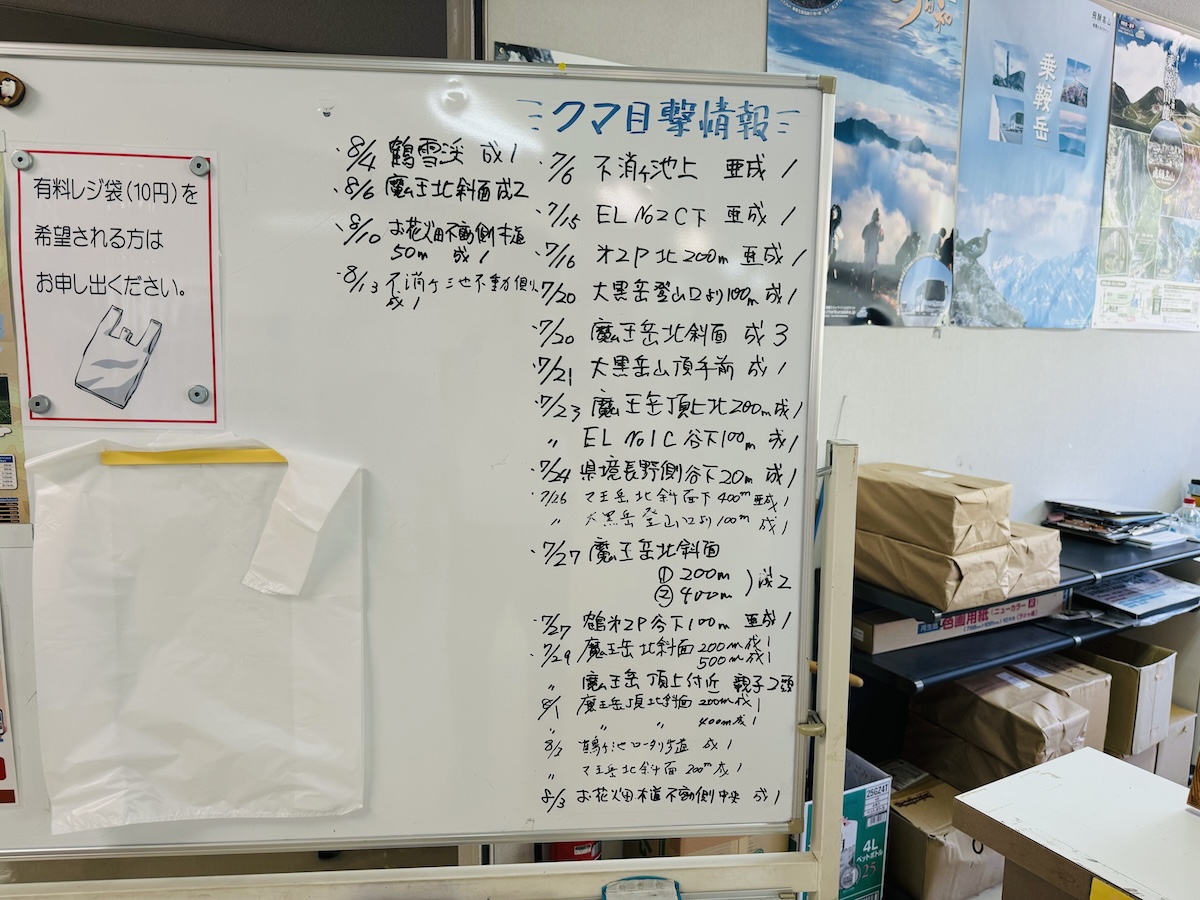 クマ目撃情報
・7/6 不消ヶ池上 亜成1
・7/15 EL No2C下 亜成1
・7/16 才2P北200m 亜成1
・7/20 大黒岳登山口より100m成1
・7/20 魔王岳北斜面 成3
・7/21 大黒岳山頂手前 成1
・7/23 魔王岳頂上北200m成1
〃 EL No1C谷下100m 成1
・7/24 県境長野側谷下20m成1
・7/26 マ王岳北斜面下400m亜成1
〃 大黒岳登山口より100m成1
・7/27 魔王岳北斜面
① 200m
② 400m
)成2
・7/27 鶴才2P谷下100m 亜成1
・7/29 魔王岳北斜面200m成1
500m成1
〃 魔王岳頂上付近 親子2頭
8/1 魔王岳頂北斜面200m成1
〃 〃 400m成1
鶴ヶ池ロータリ歩道 成1
〃 マ王岳北斜面200m成1
8/3 お花畑木道不動側中央 成1
・8/4 鶴雪渓 成1
・8/6 魔王北斜面成2
・8/10 お花畑不動側木道
50m 成1
・8/13 不消ヶ池不動側
成1
有料レジ袋(10円)を
希望される方は
お申し出ください。
乗鞍岳
飛騨高山
色画用紙(ニューカラーR)
25G24T
4L
ペットボトル
25